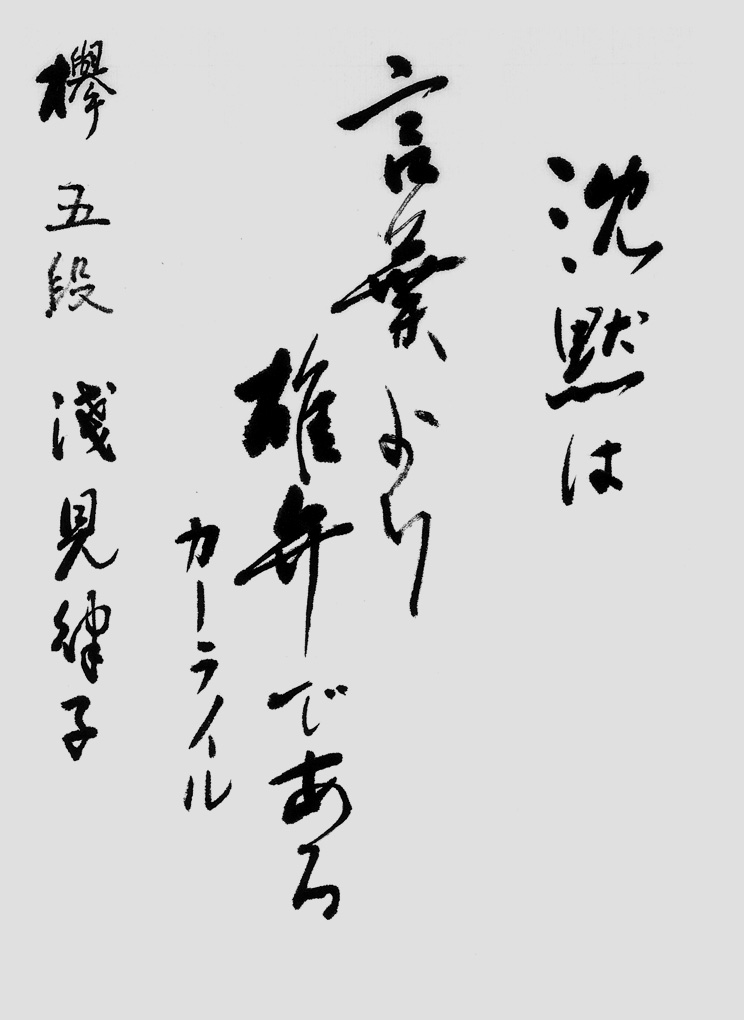 沈黙は
言葉より
雄弁である
カーライル
欅 五段 淺見律子